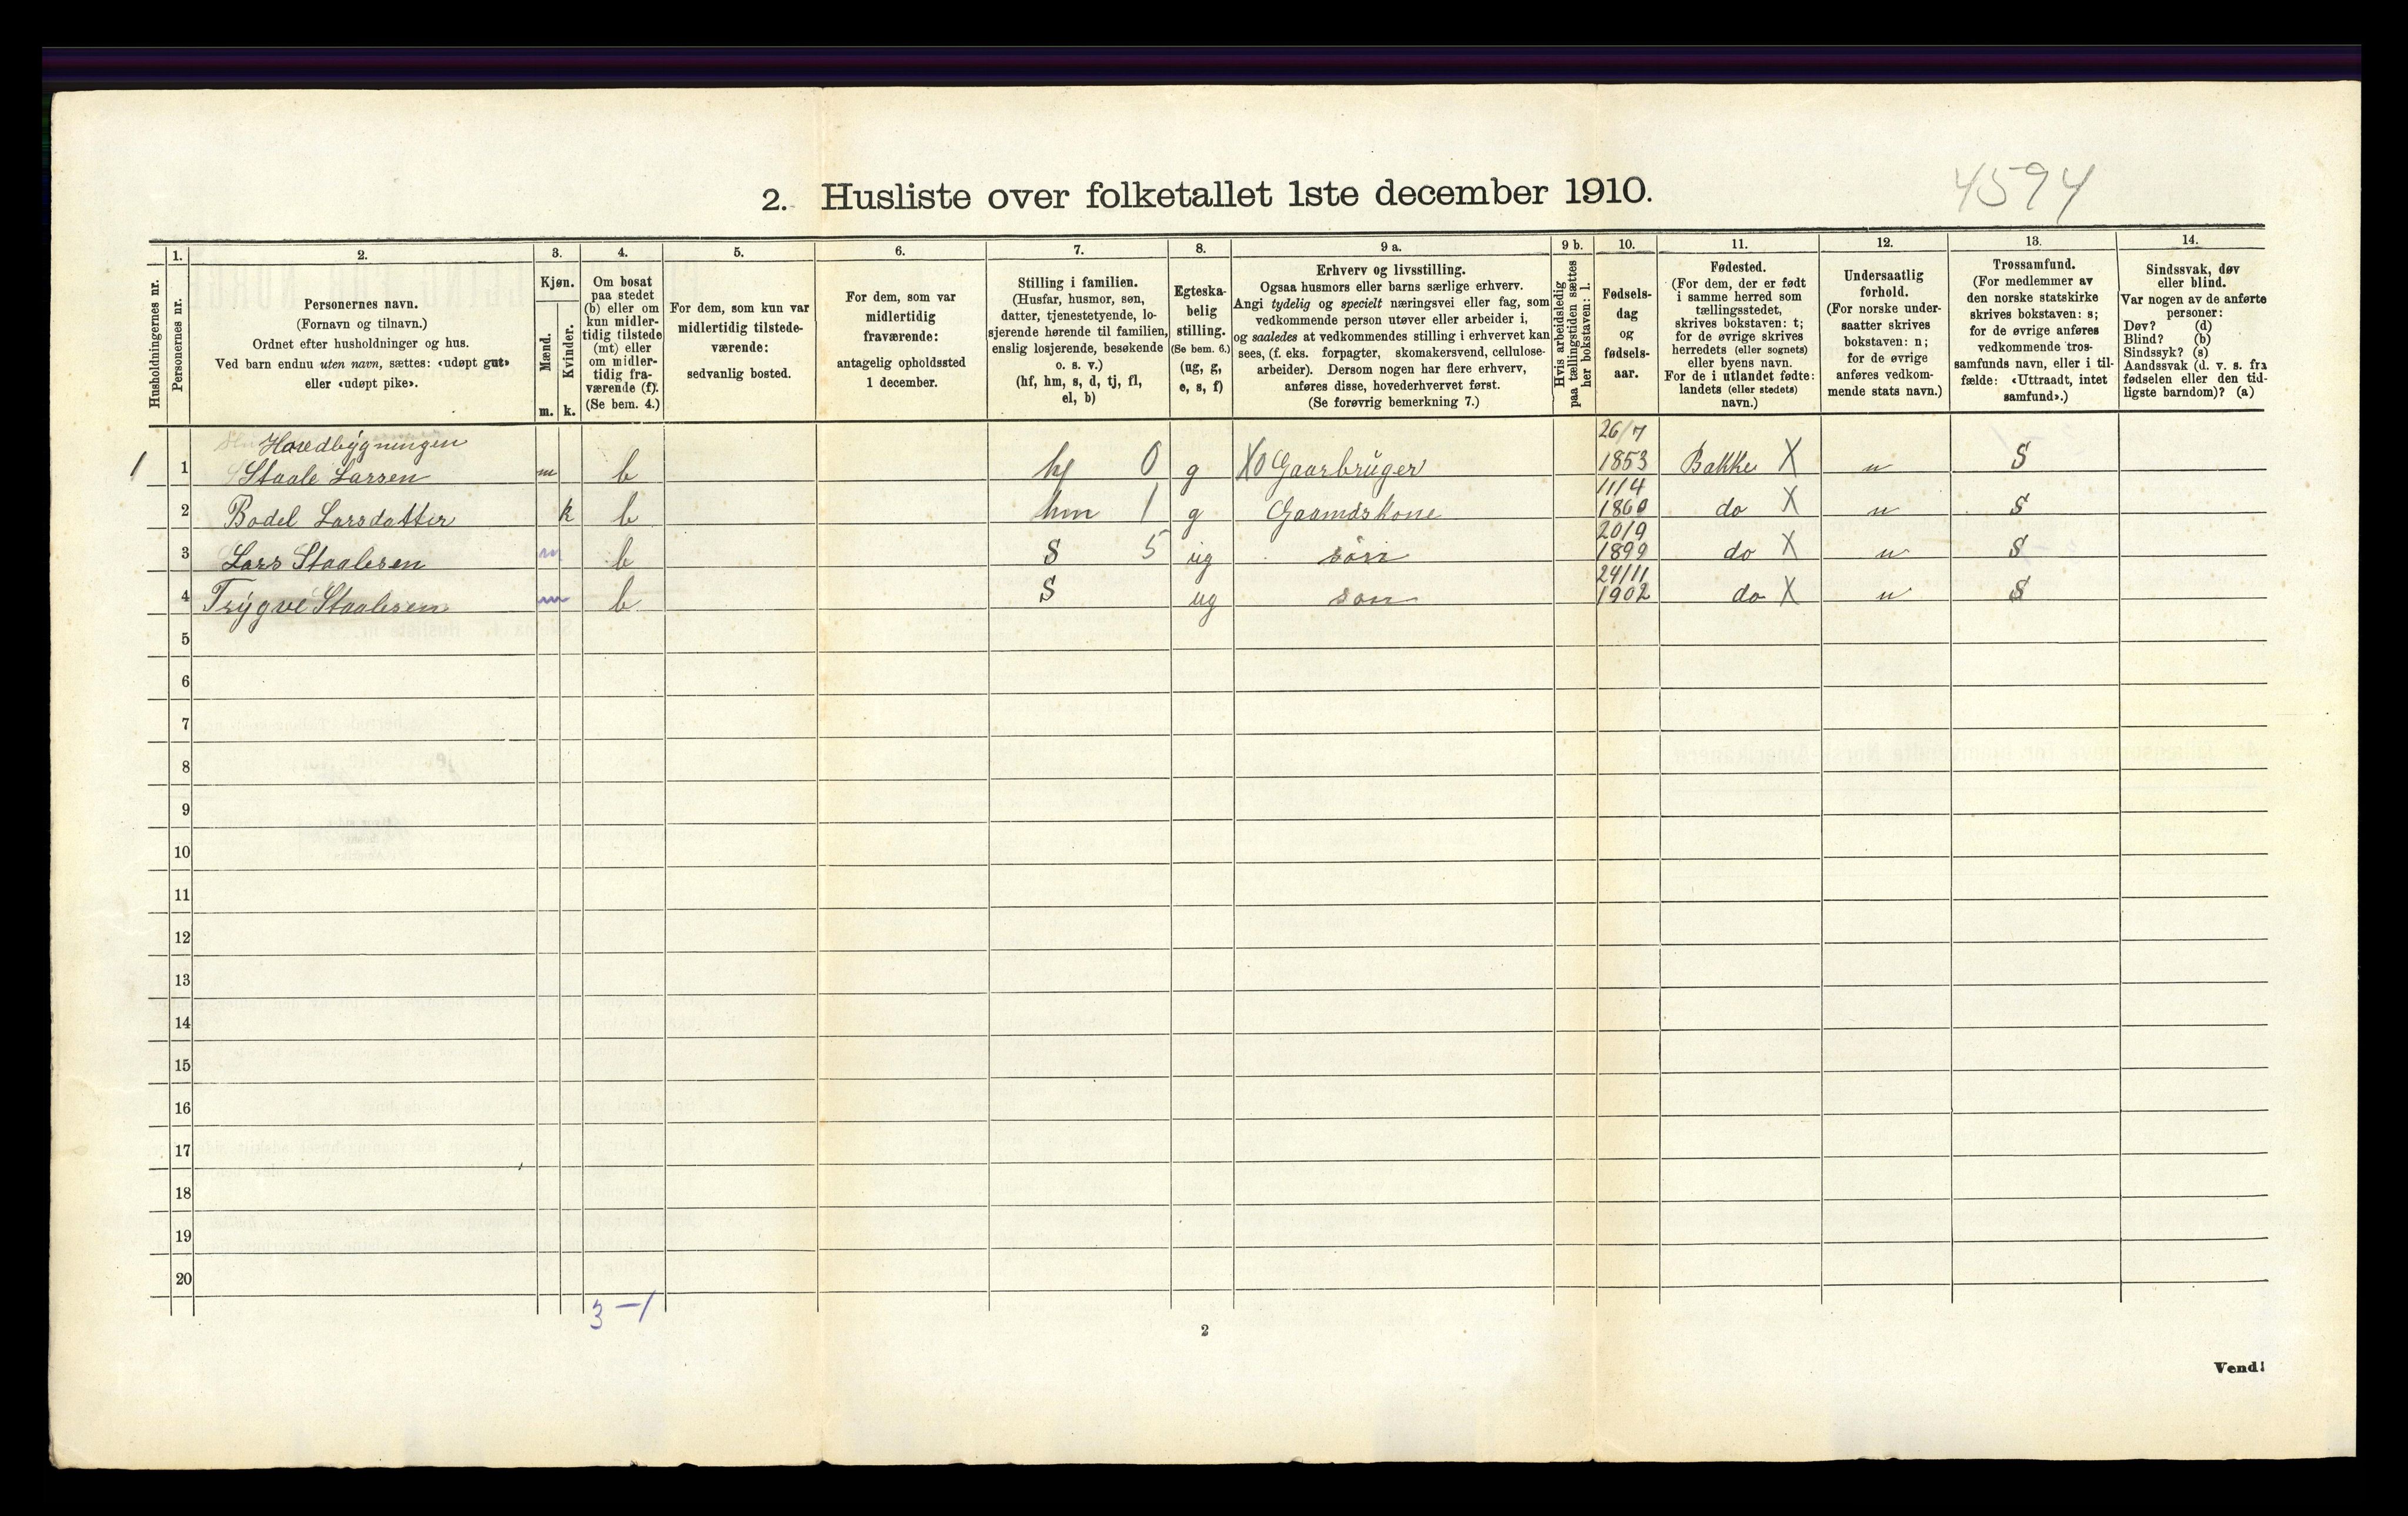 4594
2. Husliste over folketallet 1ste december 1910.
Husholdningernes nr.
1. Personernes nr.
2. Personernes navn.
(Fornavn og tilnavn.)
Ordnet efter husholdninger og hus.
Ved barn endnu uten navn, sættes: «udøpt gut»
eller «udøpt pike».
3. Kjøn.
Mænd. m.
Kvinder. k.
4. Om bosat
paa stedet
(b) eller om
kun midler-
tidig tilstede
(mt) eller
om midler-
tidig fra-
værende (f).
(Se bem. 4.)
5. For dem, som kun var
midlertidig tilstede-
værende:
sedvanlig bosted.
6. For dem, som var
midlertidig
fraværende:
antagelig opholdssted
1 december.
7. Stilling i familien.
(Husfar, husmor, søn,
datter, tjenestetyende, lo-
sjerende hørende til familien,
enslig losjerende, besøkende
o. s. v.)
(hf, hm, s, d, tj, fl,
el, b)
8. Egteska-
belig
stilling.
(Se bem. 6.)
(ug, g,
e, s, f)
9 a. Erhverv og livsstilling.
Ogsaa husmors eller barns særlige erhverv.
Angi tydelig og specielt næringsvei eller fag, som
vedkommende person utøver eller arbeider i,
og saaledes at vedkommendes stilling i erhvervet kan
sees, (f. eks. forpagter, skomakersvend, cellulose-
arbeider). Dersom nogen har flere erhverv,
anføres disse, hovederhvervet først.
(Se forøvrig bemerkning 7.)
9 b. Hvis arbeidsledig
paa tællingstiden sættes
her bokstaven: l.
10. Fødsels-
dag
og
fødsels-
aar.
11. Fødested.
(For dem, der er født
i samme herred som
tællingsstedet,
skrives bokstaven: t;
for de øvrige skrives
herredets (eller sognets)
eller byens navn.
For de i utlandet fødte:
landets (eller stedets)
navn.)
12. Undersaatlig
forhold.
(For norske under-
saatter skrives
bokstaven: n;
for de øvrige
anføres vedkom-
mende stats navn.)
13. Trossamfund.
(For medlemmer av
den norske statskirke
skrives bokstaven: s;
for de øvrige anføres
vedkommende tros-
samfunds navn, eller i til-
fælde: «Uttraadt, intet
samfund».)
14. Sindssvak, døv
eller blind.
Var nogen av de anførte
personer:
Døv? (d)
Blind? (b)
Sindssyk? (s)
Aandssvak (d. v. s. fra
fødselen eller den tid-
ligste barndom)? (a)
Hovedbygningen
1 1 Staale Larsen m b hf 0 g X0 Gaarbruger 26/7 1853 Bakke X n S
2 Bodel Larsdatter k b hm 1 g Gaamdskone 11/4 1860 do X n S
3 Lars Staalesen m b S 5 ug søn 20/9 1899 do X n S
4 Trygve Staalesen m b S ug søn 24/11 1902 do X n S
5
6
7
8
9
10
11
12
13
14
15
16
17
18
19
20
3-1
2
Vend!